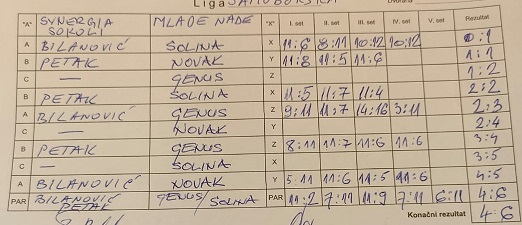 Liga
"A" SYNERGIA SOKOLI MLADE NADE "X" I. set II. set III. set IV. set V. set Rezultat
A BILANOVIĆ SOLINA X 11:6 8:11 10:12 10:12 0:1
B PETAK NOVAK Y 11:8 11:5 11:6 1:1
C — GENUS 1:2
B PETAK SOLINA X 11:5 11:7 11:4 2:2
A BILANOVIĆ GENUS Z 9:11 11:7 14:16 3:11 2:3
C — NOVAK Y 2:4
B PETAK GENUS Z 8:11 11:7 11:6 11:6 3:4
C — SOLINA X 3:5
A BILANOVIĆ NOVAK Y 5:11 11:6 11:5 11:6 4:5
PAR BILANOVIĆ PETAK GENUS/SOLINA PAR 11:2 7:11 11:9 7:11 6:11 4:6
Konačni rezultat 4:6